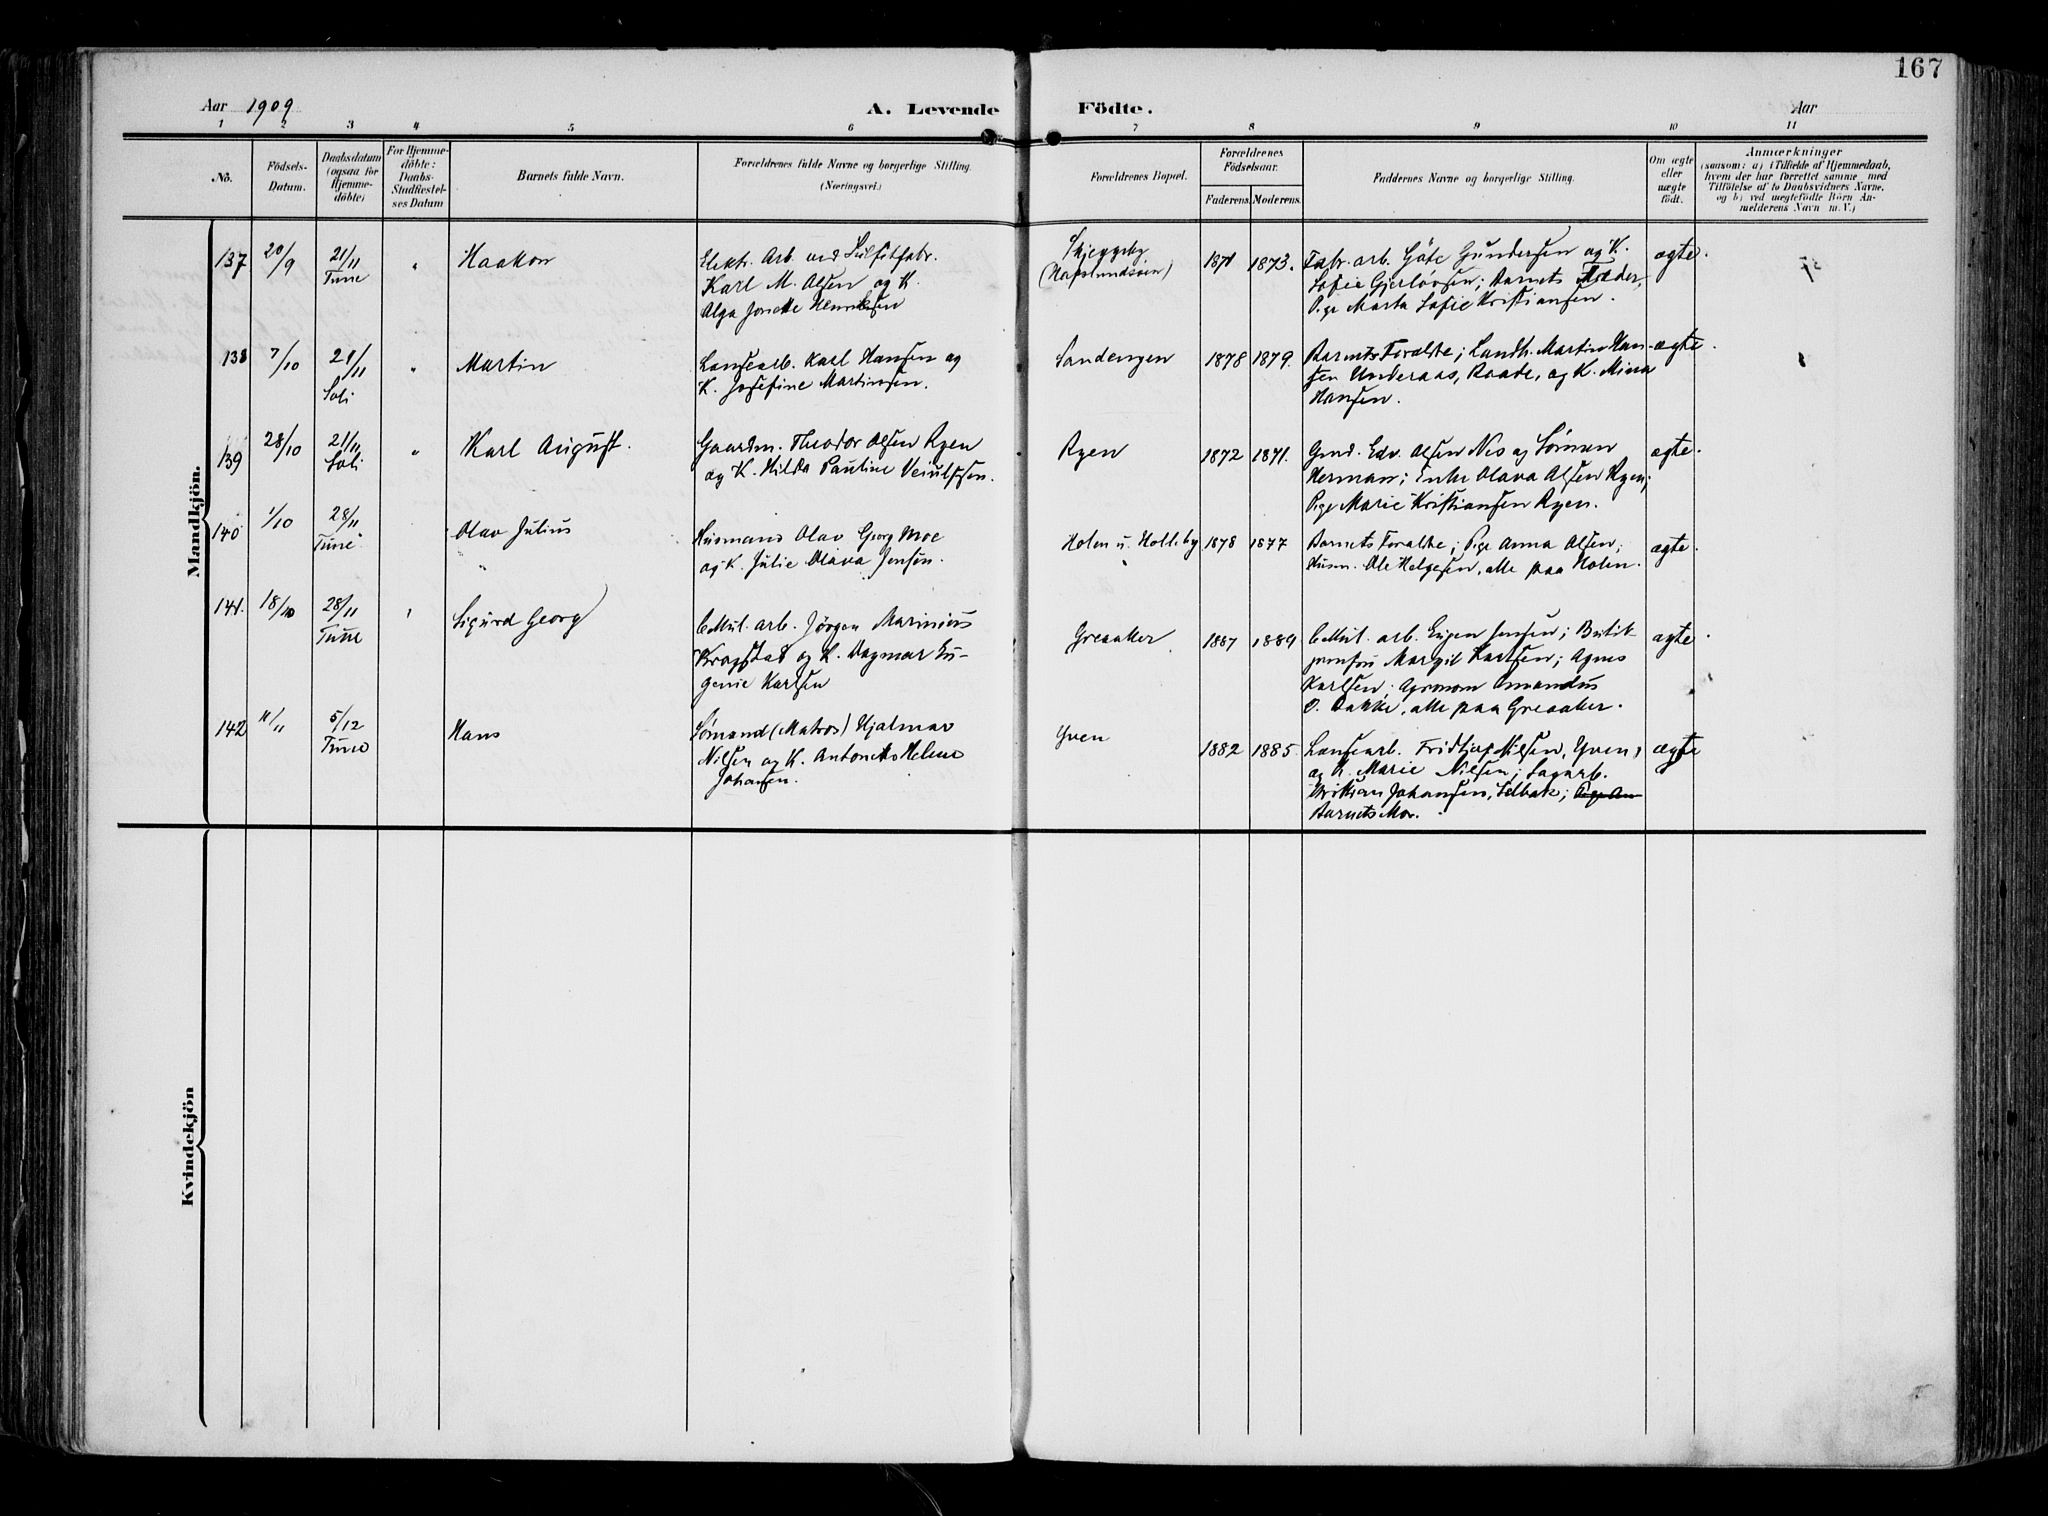 167
Aar 1909
A. Levende Födte.
Aar
1 2 3 4 5 6 7 8 9 10 11
No.
Födsels-
Datum.
Daabsdatum
(ogsaa for
Hjemme-
döbte)
For Hjemme-
döbte:
Daabs-
Stadfæstel-
ses Datum
Barnets fulde Navn.
Forældrenes fulde Navne og borgerlige Stilling.
(Næringsvei.)
Forældrenes Bopæl.
Forældrenes
Födselsaar.
Faderens. Moderens.
Faddernes Navne og borgerlige Stilling.
Om ægte
eller
uægte
födt.
Anmærkninger
(saasom: a) i Tilfælde af Hjemmedaab,
hvem der har forrettet samme, med
Tilföielse af to Daabsvidners Navne,
og b) ved uægtefödte Börn An-
melderens Navn m. V.)
Mandkjön.
137 20/9 21/11 Tune " Haakon
Elektr. Arb. ved Sulfitfabr.
Karl M. Olsen og K.
Olga Jonette Henriksen
Skjeggeby
(Hafslundsöen)
1871 1873.
Fabr. arb. Göte Gundersen og K.
Sofie Gjerlövsen; Barnets Fader,
Pige Marta Sofie Kristiansen.
ægte.
138 7/10 21/11 Soli " Martin
Landsearb. Karl Hansen og
K. Josefine Martinsen.
Sandengen
1878 1879.
Barnets Forældre; Landh. Martin Han-
sen Underaas, Raade, og K. Mina
Hansen.
ægte.
139 28/10 21/11 Soli " Karl August.
Gaardm. Theodor Olsen Ryen
og K. Hilda Pauline
Ryen
1872 1871.
Gmd. Edv. Olsen Nes og Sönnen
Herman; Enke Olava Olsen Ryen;
Pige Marie Kristiansen Ryen.
ægte.
140 1/10 28/11 Tune Olav Julius
Husmand Olav Georg Moe
og K. Julie Olava Jensen.
Holen u. Holleby
1878 1877
Barnets Forældre; Pige Anna Olsen;
Husm. Ole Helgesen, alle paa Holen.
ægte.
141. 18/10 28/11 Tune " Sigurd Georg
Cellul. arb. Jörgen Marinius
Krogstad og K. Dagmar Eu-
genie Karlsen
Greaaker
1887 1889
Cellul. arb. Eugen Jensen; Butik-
jomfru Margit Karlsen; Agnes
Karlsen; Agronom Amandus
O. Bakke, alle paa Greaaker.
ægte.
142 11/11 5/12 Tune Hans
Sømand (Matros) Hjalmar
Nilsen og K. Antonette Helene
Johansen.
Yven
1882 1885.
Landsearb. Fridtjof Nilsen, Yven,
og K. Marie Nilsen; Sagarb.
Kristian Johansen, Selbak; Pige An
Barnets Mor.
ægte
Kvindekjön